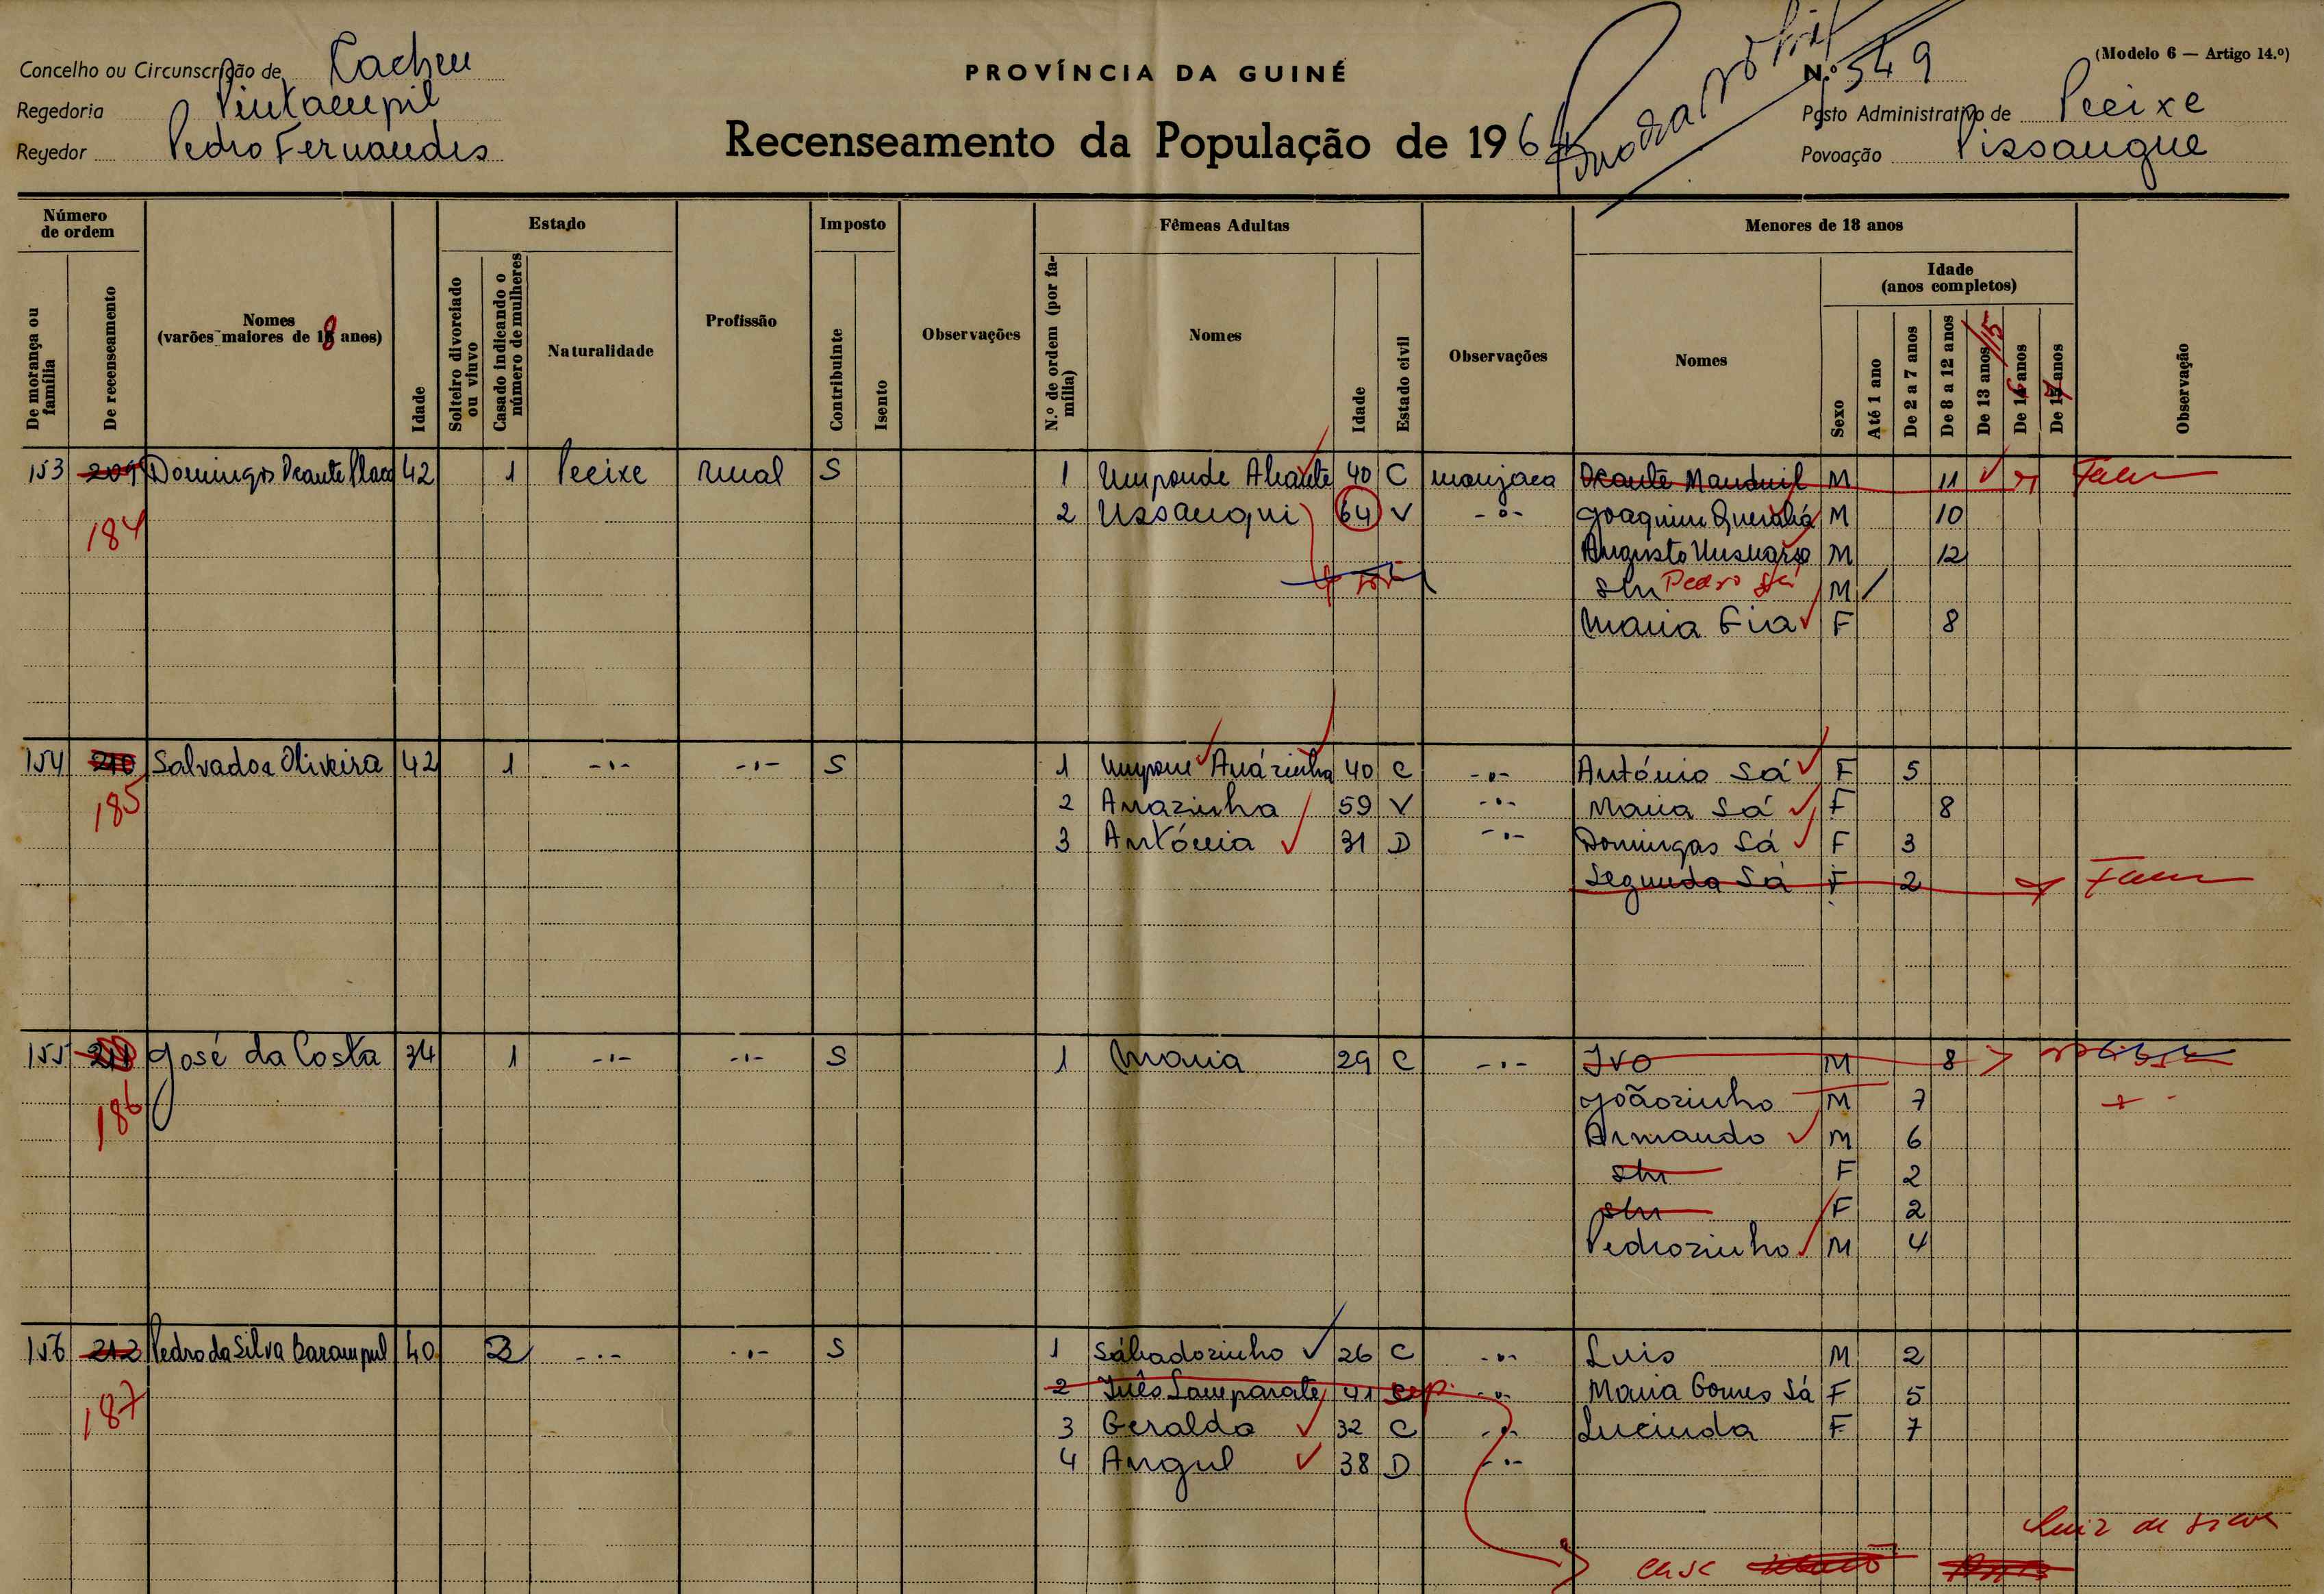 Concelho ou Circunscrição de Cacheu
Regedoria
Regedor Pedro Fernandes
PROVÍNCIA DA GUINÉ
Recenseamento da População de 1964
N.º 549
(Modelo 6 — Artigo 14.º)
Posto Administrativo de Pecixe
Povoação Pissangue
Número de ordem
De morança ou família
De recenseamento
Nomes
(varões maiores de 18 anos)
Idade
Estado
Solteiro divorciado ou viuvo
Casado indicando o número de mulheres
Naturalidade
Profissão
Imposto
Contribuinte
Isento
Observações
Fêmeas Adultas
N.º de ordem (por família)
Nomes
Idade
Estado civil
Observações
Menores de 18 anos
Nomes
Idade
(anos completos)
Sexo
Até 1 ano
De 2 a 7 anos
De 8 a 12 anos
De 13 anos /15
De 16 anos
De 17 anos
Observação
153 209 Domingos 42 1 Pecixe rural S 1 40 C manjaca M 11
184 2 Ussanqui 64 V -"- Joaquim M 10
Augusto M 12
Pedro Sá M
Maria F 8
154 210 Salvador Oliveira 42 1 -"- -"- S 1 40 C -"- António Sá F 5
185 2 Anazinha 59 V -"- Maria Sá F 8
3 Antónia 31 D -"- Domingas Sá F 3
Segunda Sá F 2
155 211 José da Costa 34 1 -"- -"- S 1 Maria 29 C -"- Ivo M 8
186 Joãozinho M 7
Armando M 6
F 2
F 2
Pedrozinho M 4
156 212 Pedro da Silva 40 2 -"- -"- S 1 Sábadozinho 26 C -"- Luis M 2
187 2 Inês 41 sep. -"- Maria Gomes Sá F 5
3 Geralda 32 C -"- Lucinda F 7
4 Angul 38 D -"-